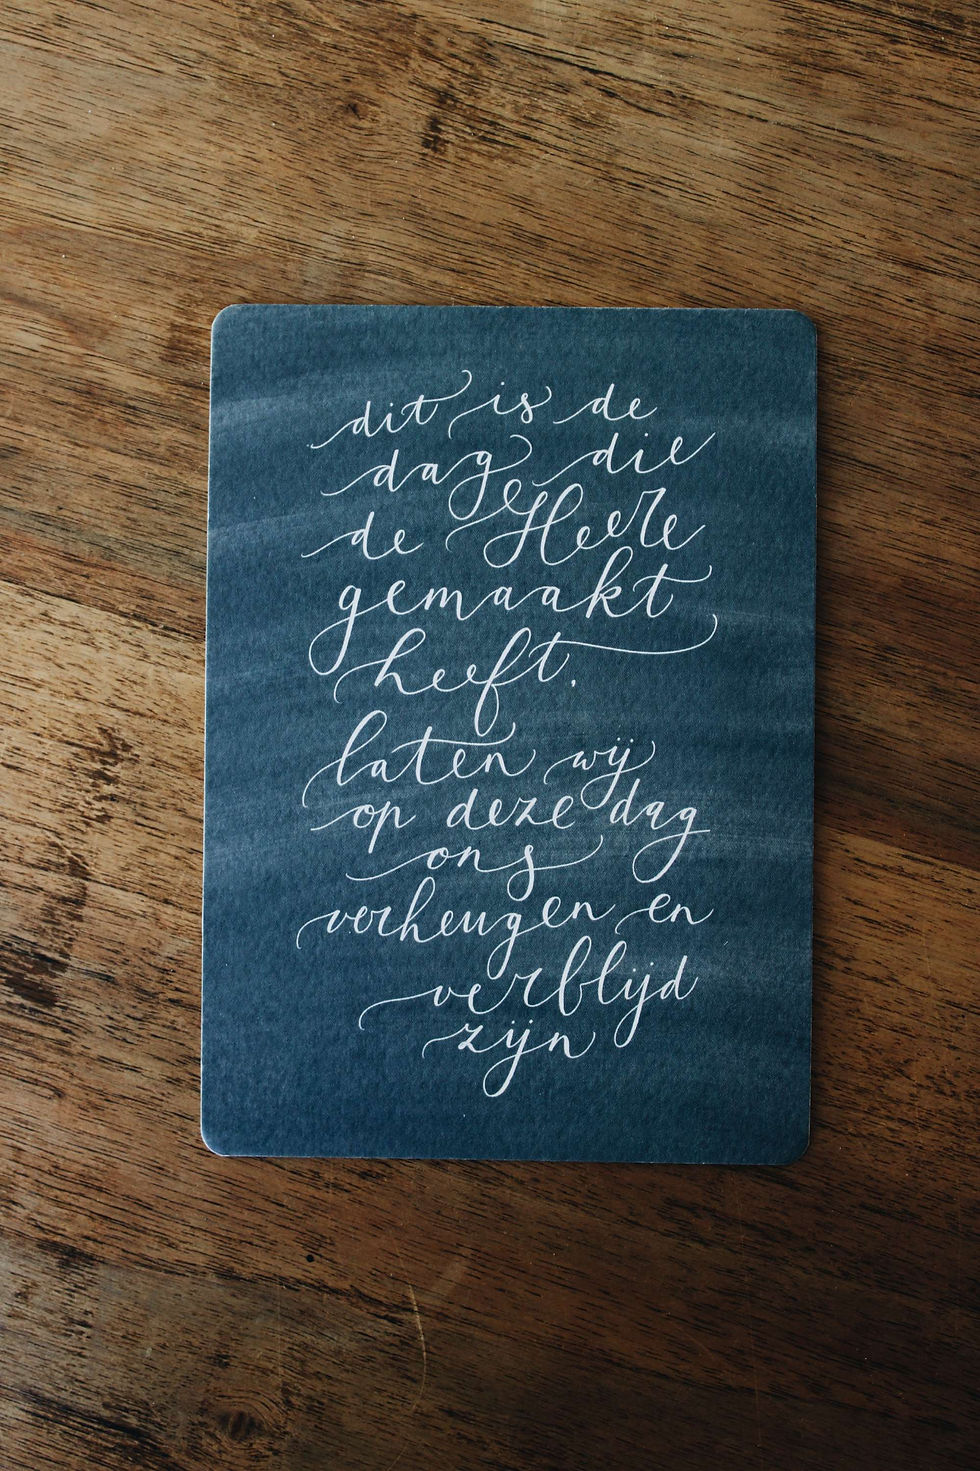 dit is de
dag die
de Heere
gemaakt
heeft.
laten wij
op deze dag
ons
verheugen en
verblijd
zijn